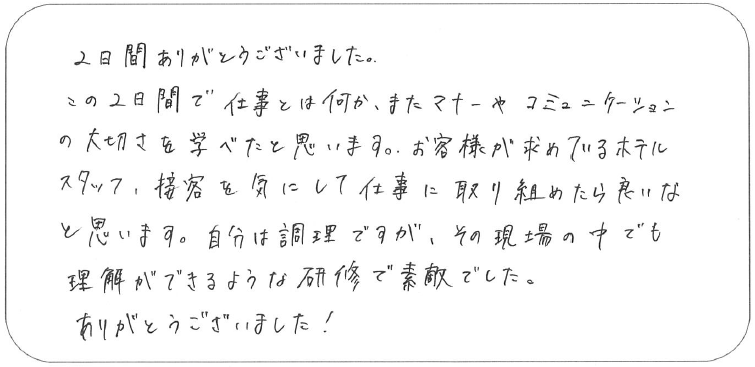 2日間ありがとうございました。
この2日間で仕事とは何か、またマナーや コミュニケーション
の大切さを学べたと思います。お客様が求めているホテル
スタッフ、接客を気にして仕事に取り組めたら良いな
と思います。自分は調理ですが、その現場の中でも
理解ができるような研修で素敵でした。
ありがとうございました!